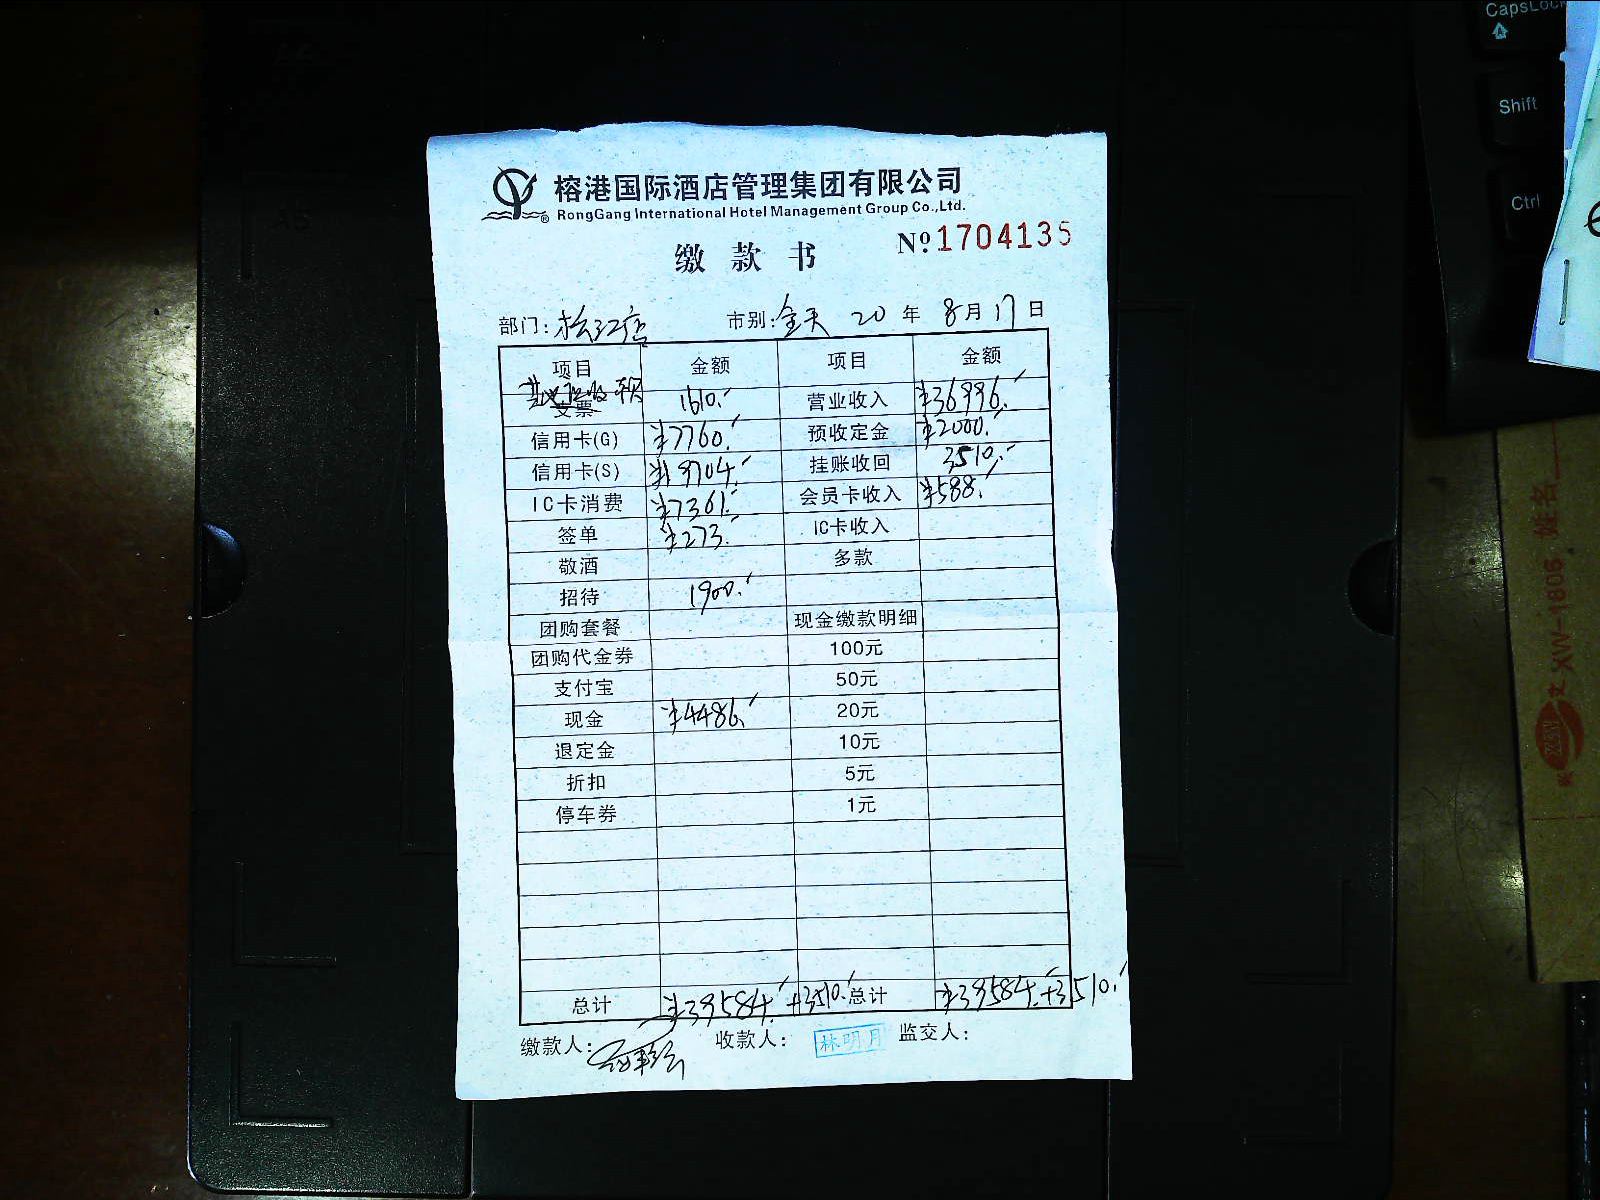 榕港国际酒店管理集团有限公司
RongGang International Hotel Management Group Co.,Ltd.
缴款书 Nº 1704135
部门: 松江店 市别: 全天 20 年 8月 17 日
项目 金额 项目 金额
支票 1610. 营业收入 ¥36996.
信用卡(G) ¥7760. 预收定金 ¥2000.
信用卡(S) ¥19704. 挂账收回 3510.
IC卡消费 ¥7361. 会员卡收入 ¥588.
签单 ¥273. IC卡收入
敬酒 多款
招待 1900.
团购套餐 现金缴款明细
团购代金券 100元
支付宝 50元
现金 ¥4486. 20元
退定金 10元
折扣 5元
停车券 1元
总计 ¥39584.+3510. 总计 ¥39584.+3510.
缴款人: 收款人: 林明月 监交人:
CapsLock
Shift
Ctrl
文XW-1806 姓名